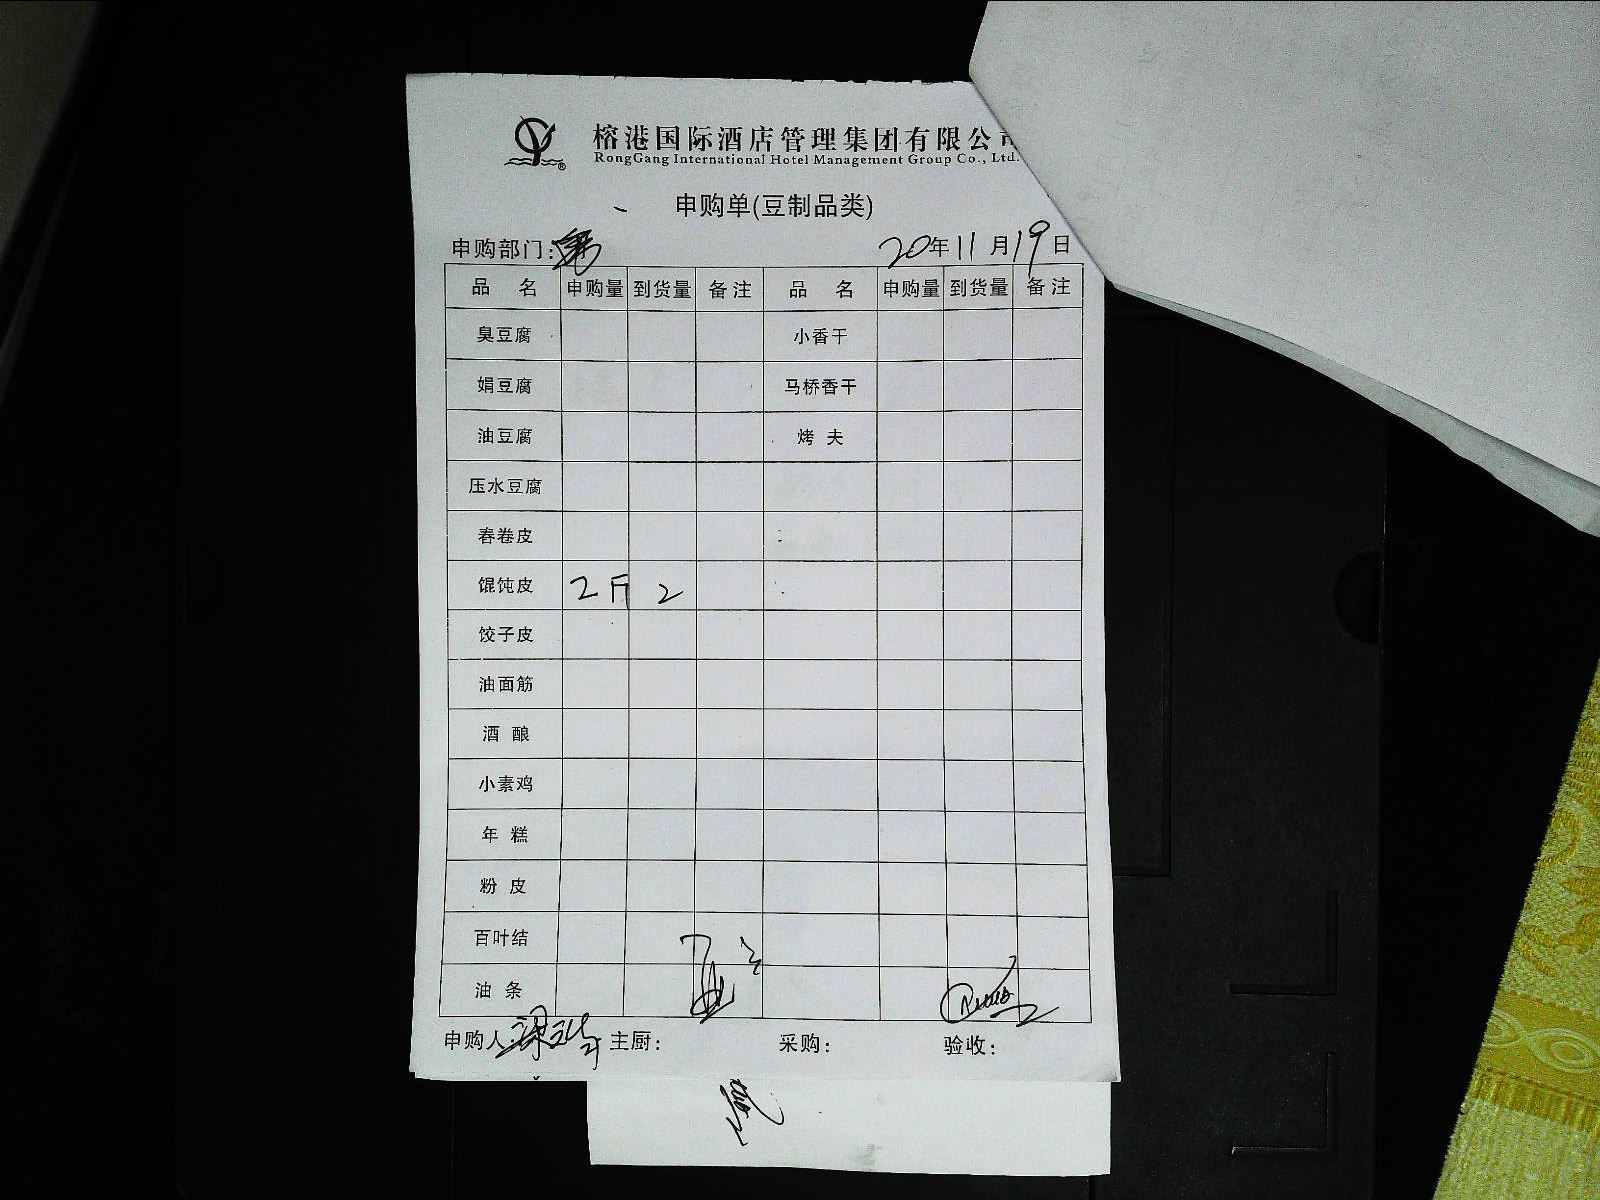 榕港国际酒店管理集团有限公司
RongGang International Hotel Management Group Co., Ltd.
®
申购单(豆制品类)
申购部门: 20年11月19日
品 名 申购量 到货量 备注 品 名 申购量 到货量 备注
臭豆腐 小香干
娟豆腐 马桥香干
油豆腐 烤 夫
压水豆腐
春卷皮
馄饨皮 2斤 2
饺子皮
油面筋
酒 酿
小素鸡
年 糕
粉 皮
百叶结
油 条
申购人: 主厨: 采购: 验收: